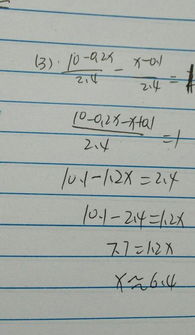 (3). (10-0.2x)/2.4 - (x-0.1)/2.4 = 1
(10-0.2x-x+0.1)/2.4 = 1
10.1-1.2x=2.4
10.1-2.4=1.2x
7.7=1.2x
x≈6.4